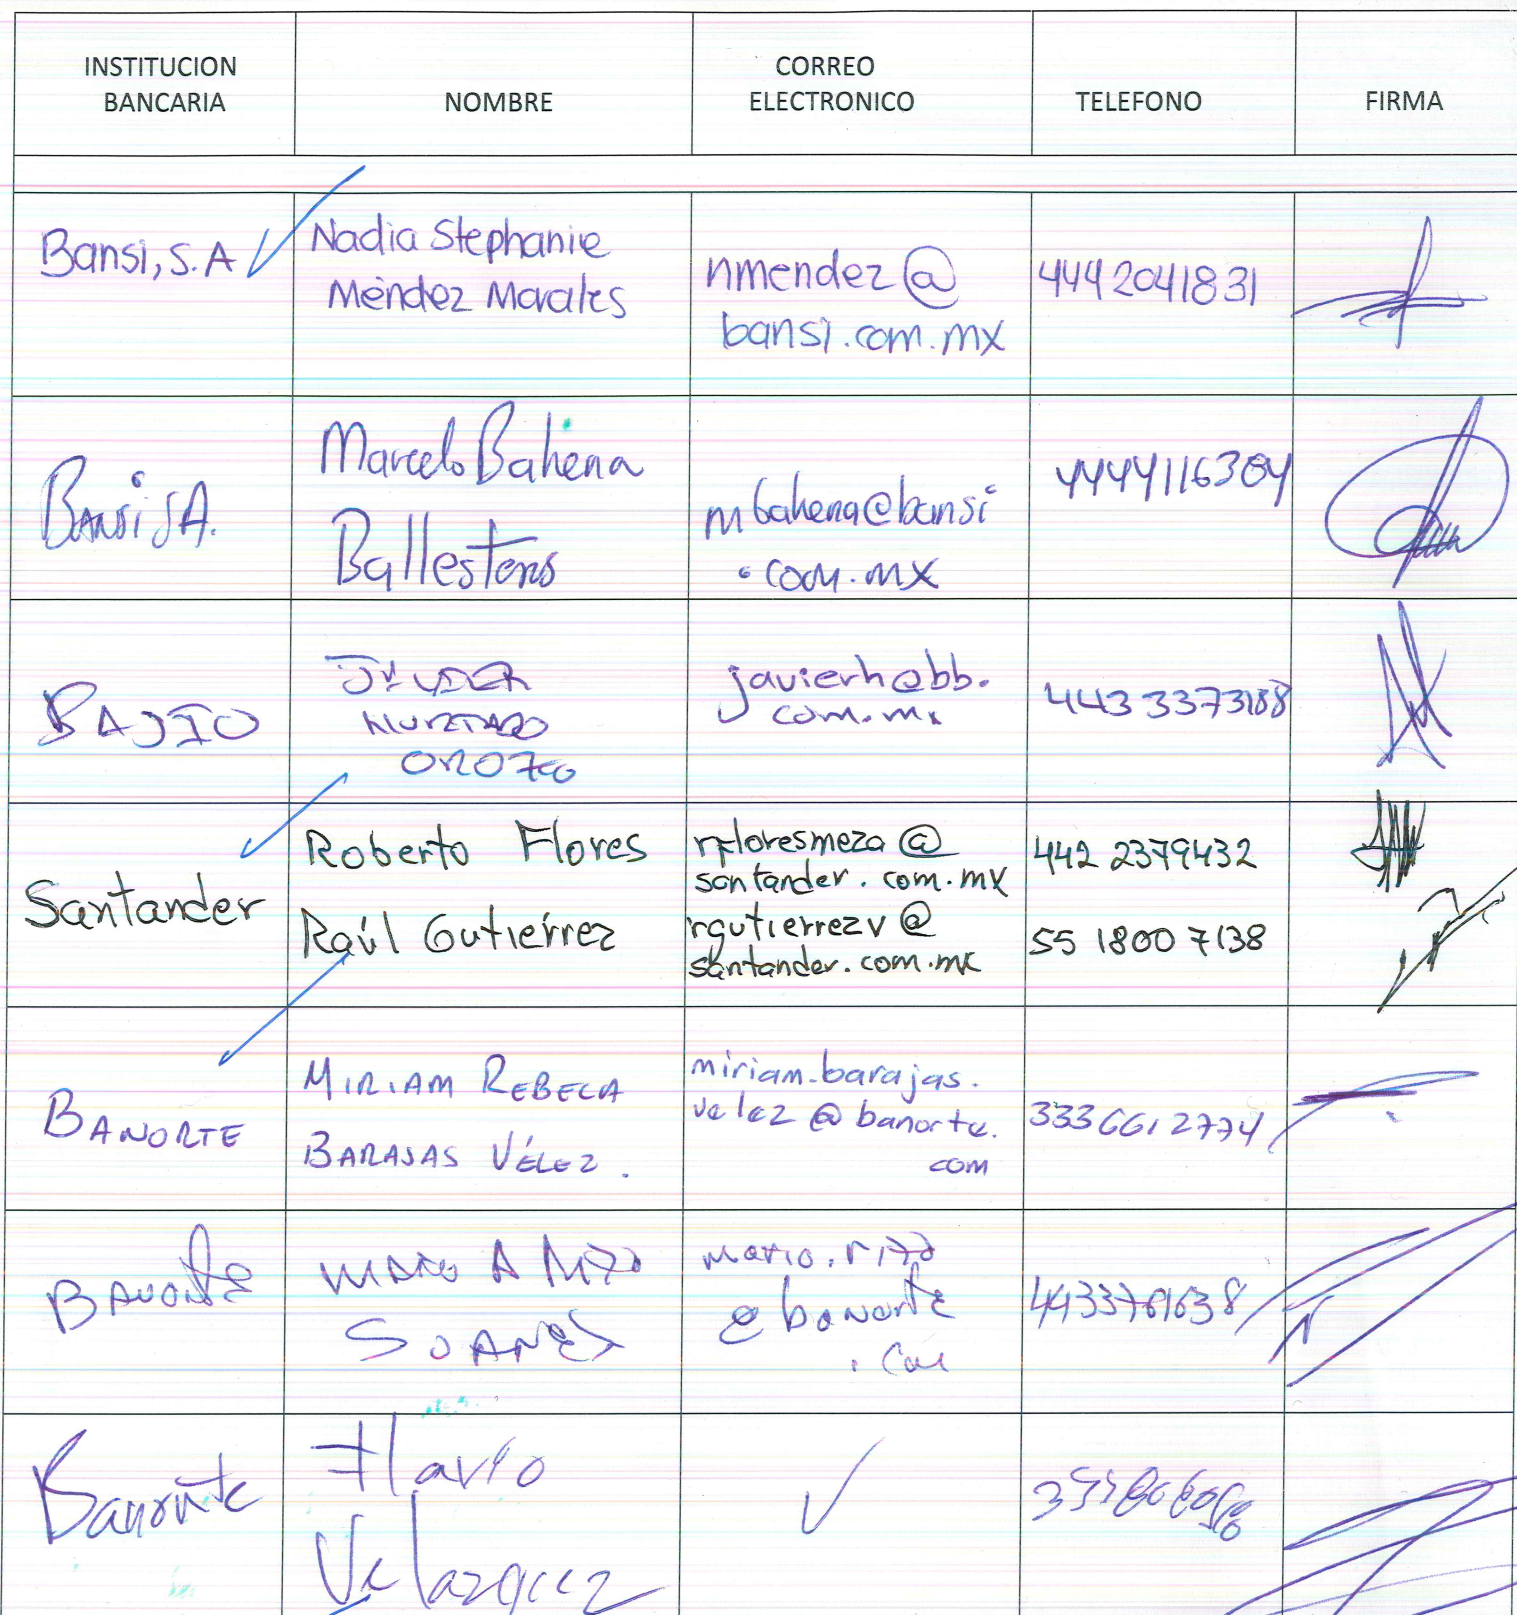 INSTITUCION
BANCARIA
NOMBRE
CORREO
ELECTRONICO
TELEFONO
FIRMA
Bansi, S.A
Nadia Stephanie
Méndez Morales
nmendez@
bansi.com.mx
444 2041831
Bansi SA.
Marcelo Bahena
Ballesteros
mbahena@bansi
.com.mx
4444116304
BAJIO
JAVIER
HURTADO
OROZCO
javierh@bb.
com.mx
443 3373188
Santander
Roberto Flores
rfloresmeza@
santander.com.mx
442 2379432
Raúl Gutiérrez
rgutierrezv@
santander.com.mx
55 1800 7138
BANORTE
MIRIAM REBECA
BARAJAS VÉLEZ.
miriam.barajas.
velez@banorte.
com
3336612774
BANORTE
SUAREZ
mario.rizo
@banorte
.com
Banorte
Flavio
Velazquez